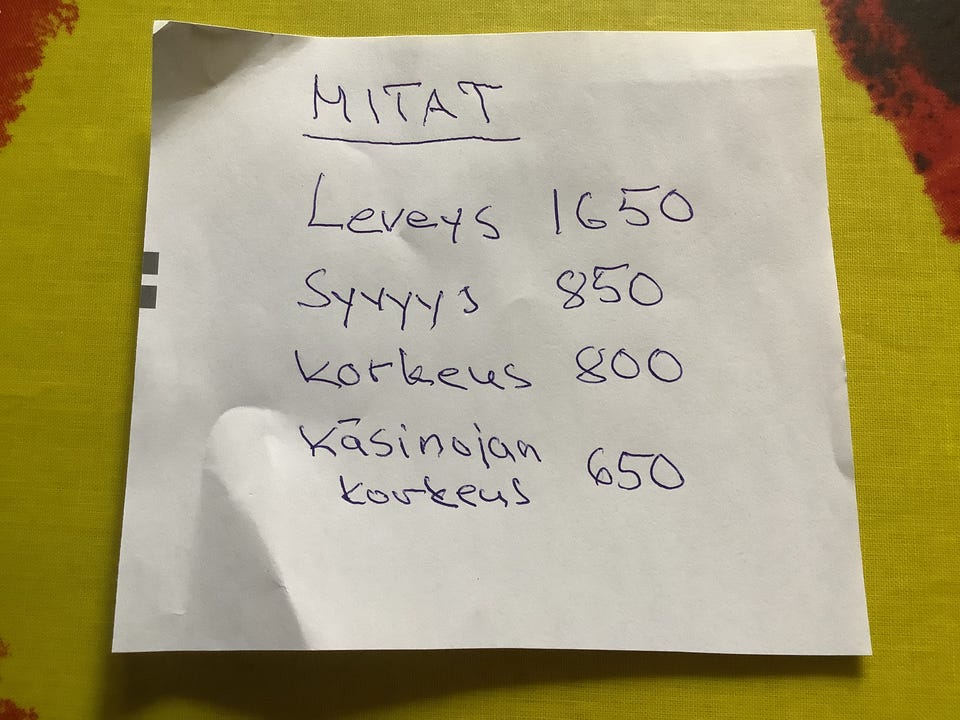 MITAT
Leveys 1650
Syvyys 850
korkeus 800
Käsinojan
korkeus 650